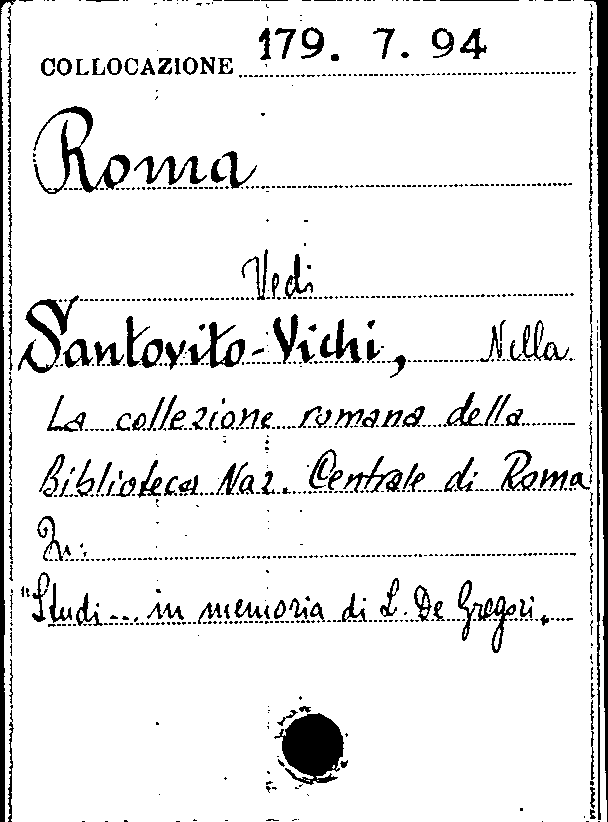 COLLOCAZIONE 179. 7. 94
Roma
Vedi
Santovito-Vichi, Nella
La collezione romana della
Biblioteca Naz. Centrale di Roma
In:
"Studi... in memoria di L. De Gregori.